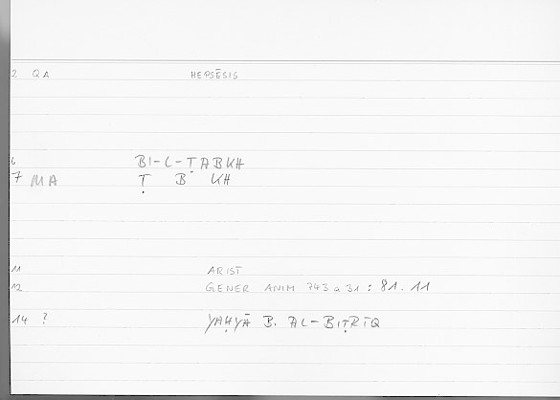 2 QA HEPSĒSIS
6 BI-L-ṬABKH
7 MA Ṭ B KH
11 ARIST
12 GENER ANIM 743 a 31 : 81.11
14 ? YAḤYĀ B. AL-BIṬRĪQ